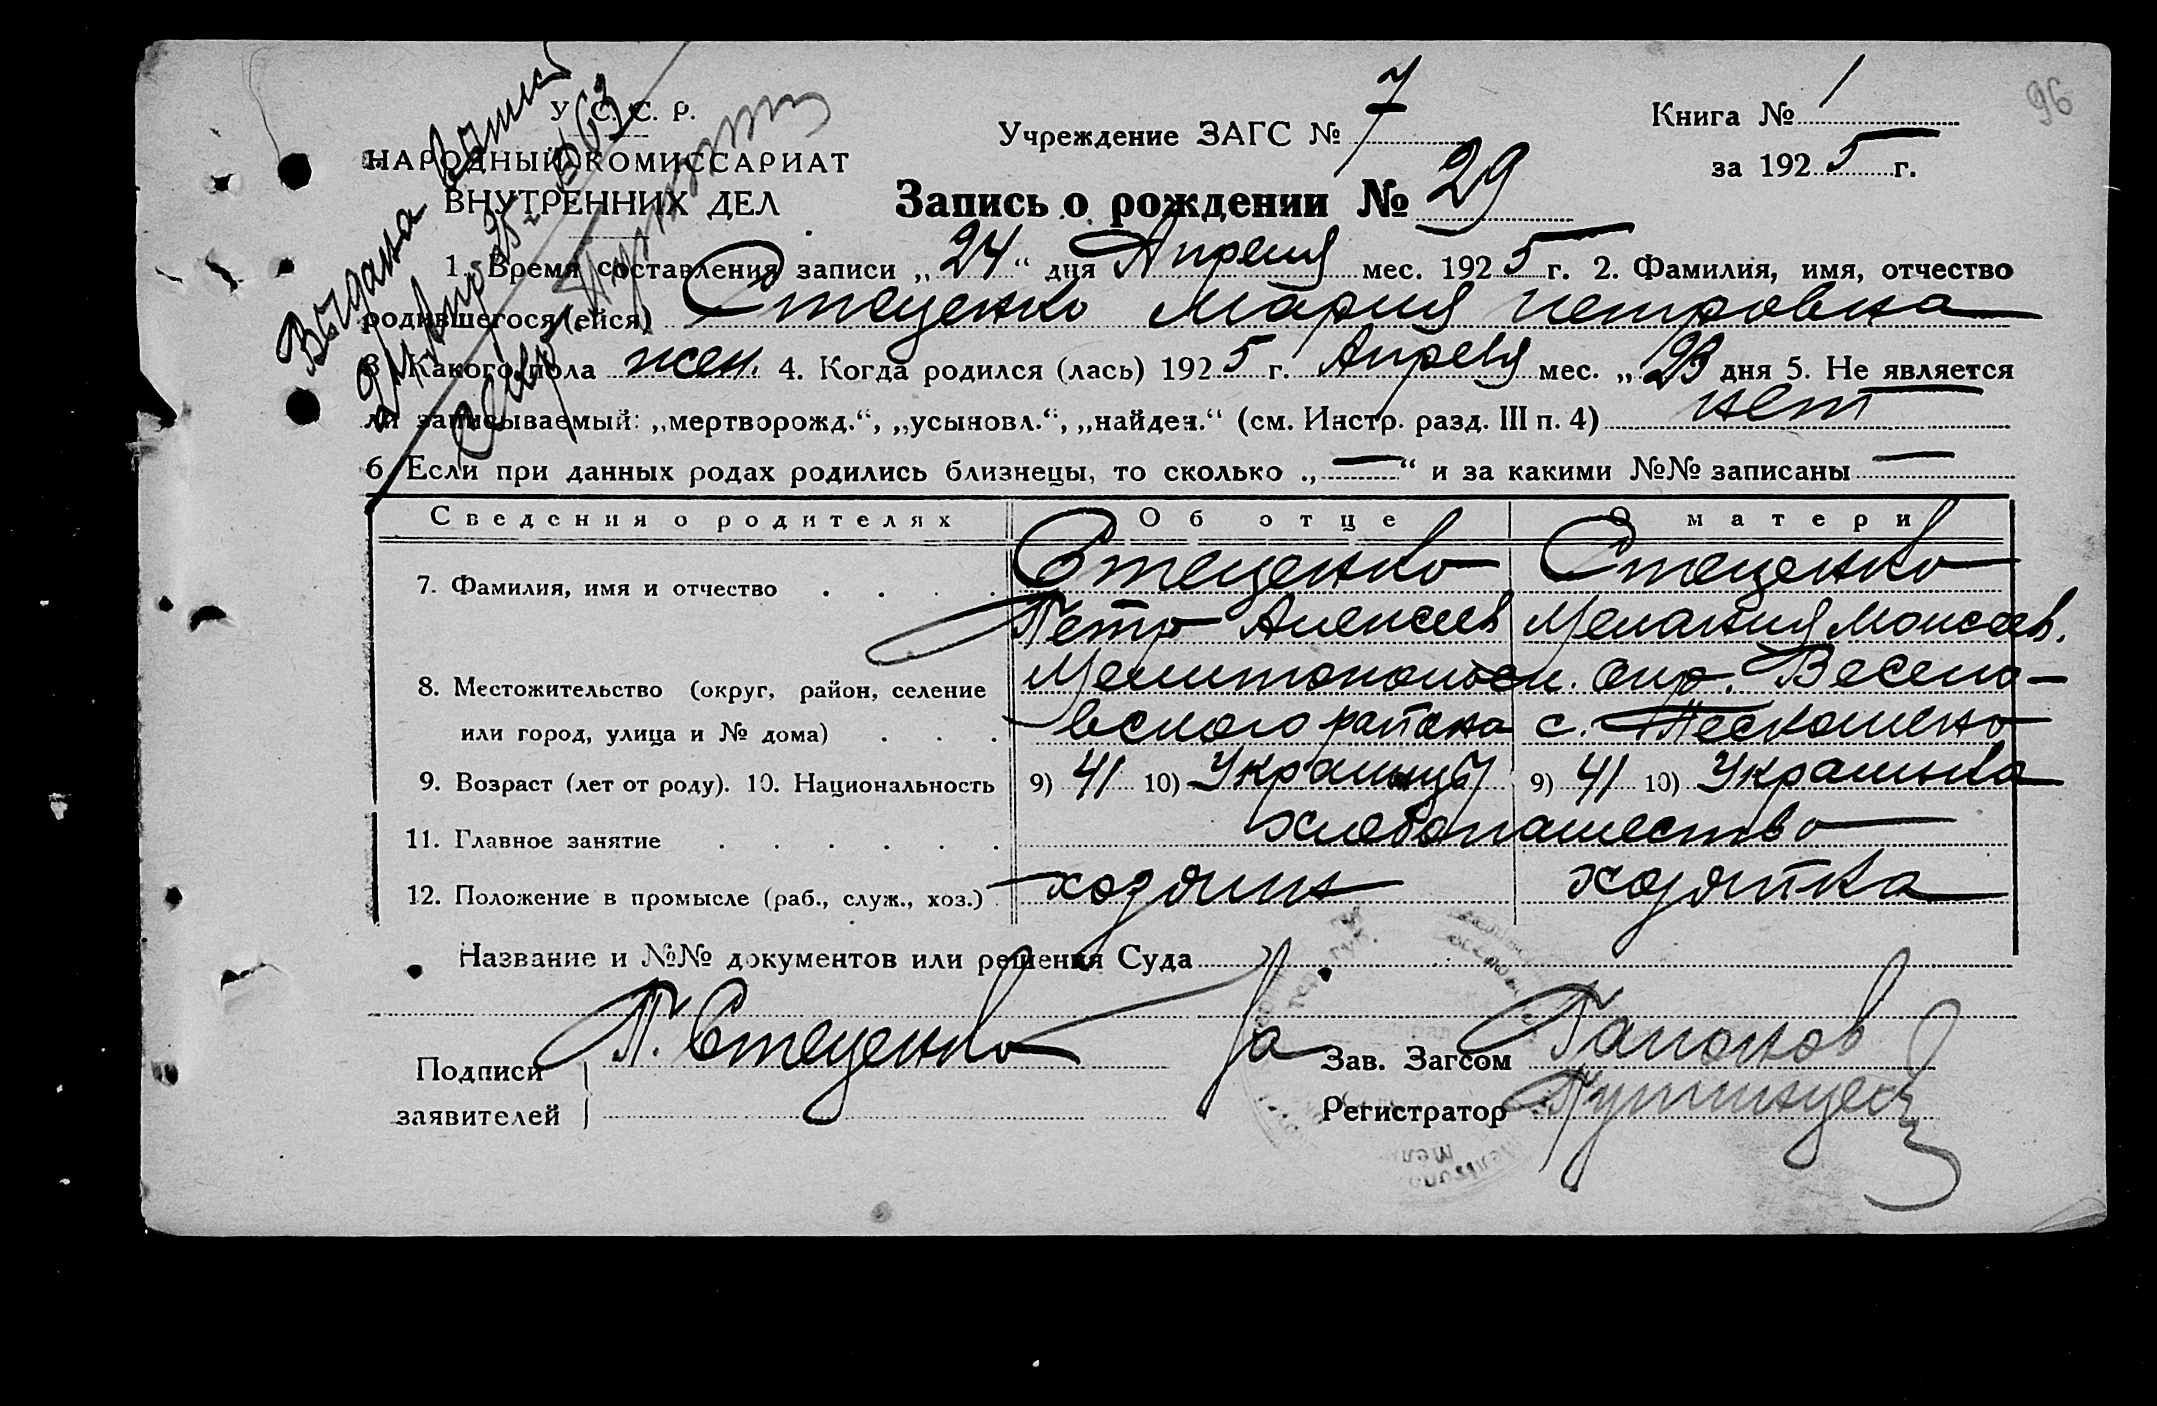 96
У. С. С. Р.
НАРОДНЫЙ КОМИССАРИАТ
ВНУТРЕННИХ ДЕЛ
Учреждение ЗАГС № 7
Книга № 1
за 1925 г.
Запись о рождении № 29
Выдана
1. Время составления записи „24“ дня Апреля мес. 1925 г. 2. Фамилия, имя, отчество
родившегося (ейся) Стеценко Мария Петровна
3. Какого пола жен. 4. Когда родился (лась) 1925 г. Апреля мес. „23 дня 5. Не является
ли записываемый: „мертворожд.“, „усыновл.“, „найден.“ (см. Инстр. разд. III п. 4) нет
6. Если при данных родах родились близнецы, то сколько „—“ и за какими №№ записаны —
Сведения о родителях Об отце О матери
7. Фамилия, имя и отчество . . . . Стеценко Стеценко
Петр Алексеев Мелания Моисеев.
8. Местожительство (округ, район, селение Мелитопольск. окр. Весело-
или город, улица и № дома) . . . вского района с.
9. Возраст (лет от роду). 10. Национальность 9) 41 10) Украинцы 9) 41 10) Украинка
11. Главное занятие . . . . . . хлебопашество
12. Положение в промысле (раб., служ., хоз.) . хозяин хозяйка
Название и №№ документов или решения Суда
Подписи заявителей П. Стеценко
За Зав. Загсом Гапонов
Регистратор